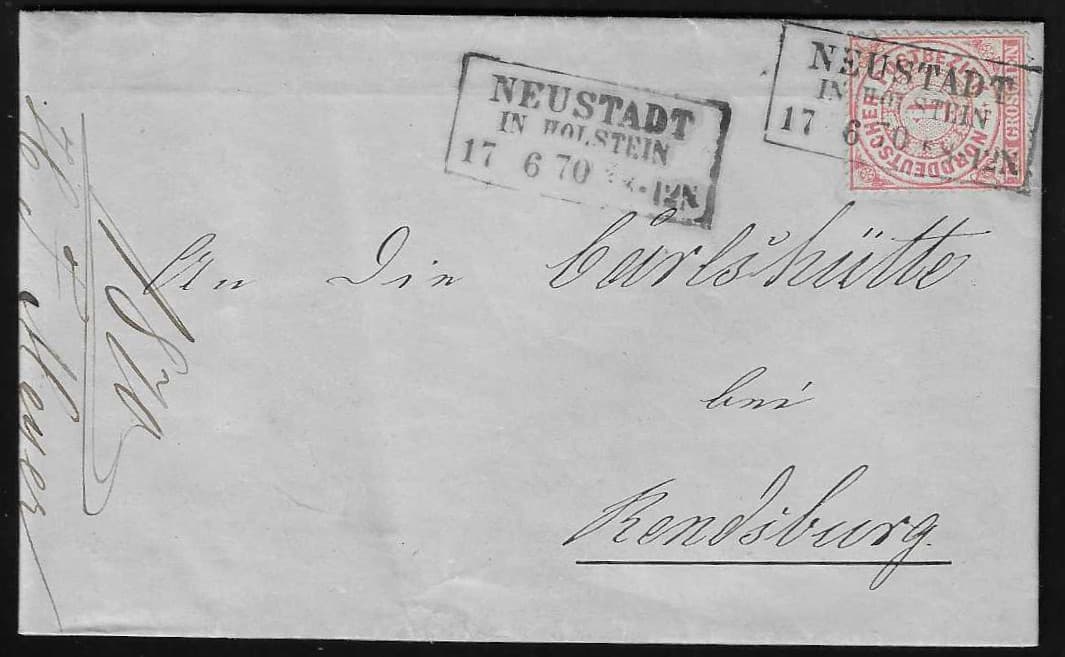 NEUSTADT
IN HOLSTEIN
17 6 70 -12N
NEUSTADT
IN HOLSTEIN
17 6 70 -12N
NORDDEUTSCHER POSTBEZIRK
1
EIN GROSCHEN
An die Carlshütte
bei
Rendsburg.